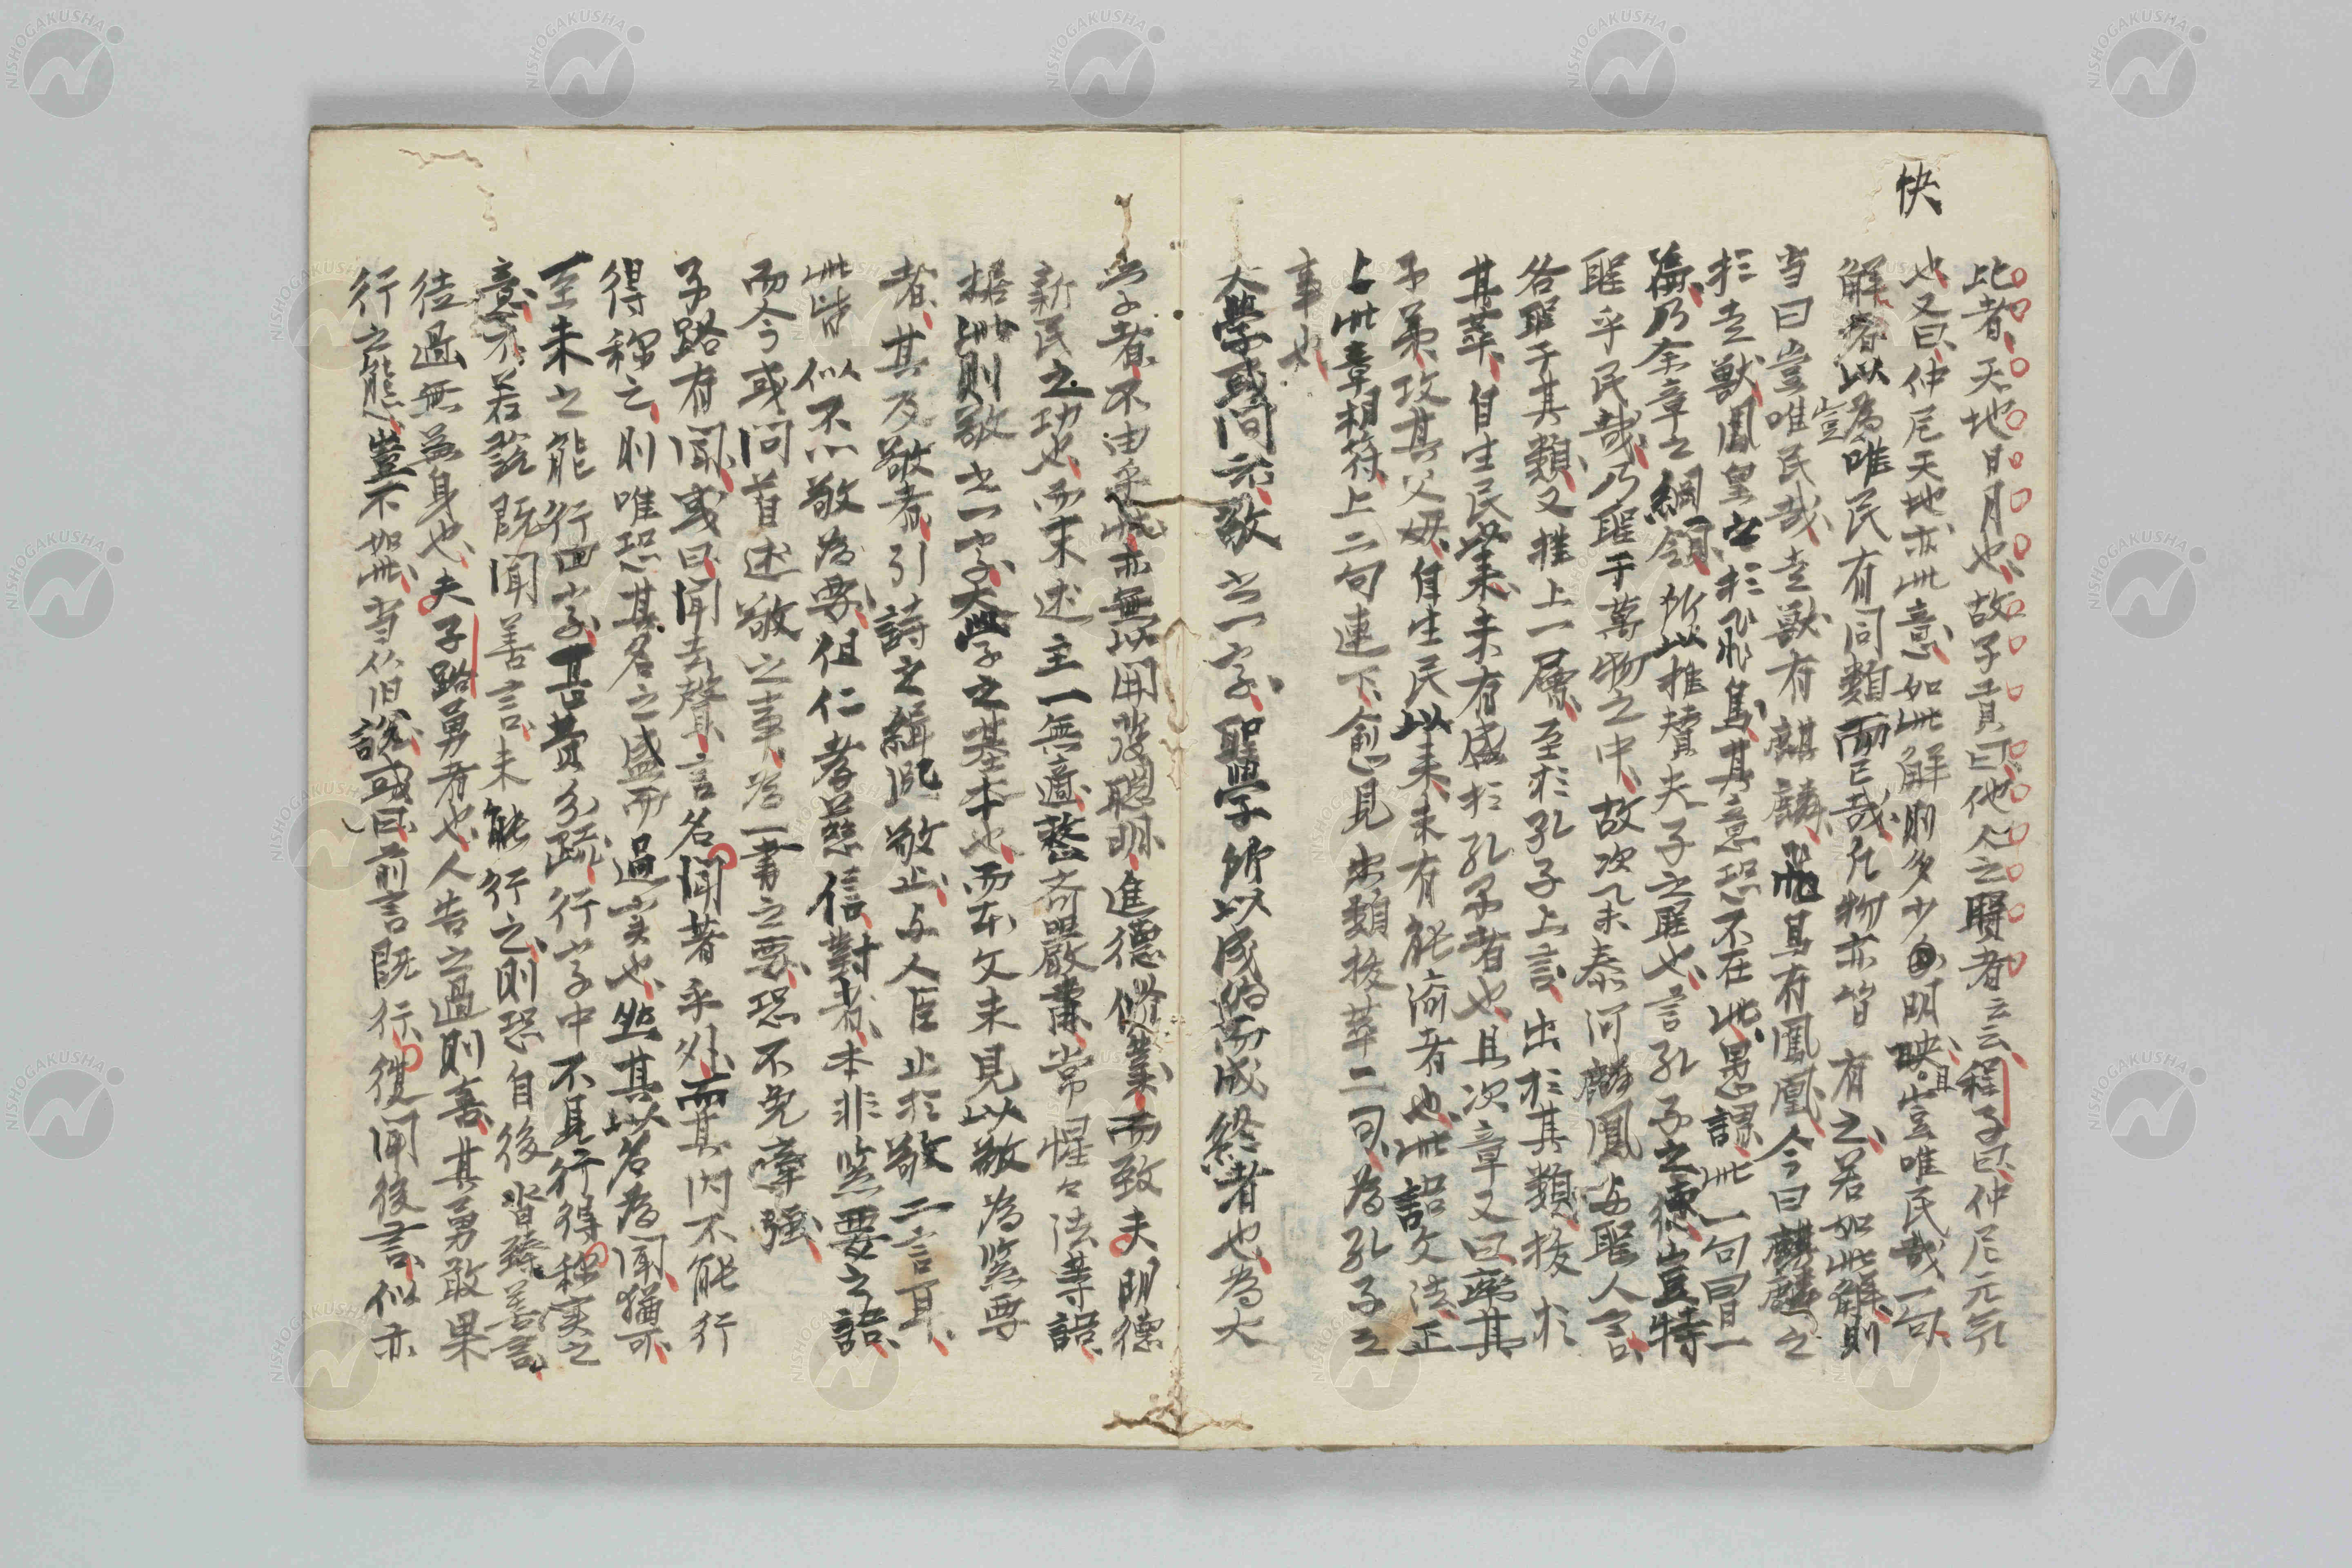 快
比者、天地日月也、故子貢曰、他人之賢者云云、程子曰、仲尼元気
也、又曰、仲尼天地、亦此意、如此解則多少明映、且豈唯民哉一句、
解者以為唯民有同類而已哉、凡物亦皆有之、若如此解、則
当曰豈唯民哉、豈走獣有麒麟、飛鳥有鳳凰、今曰麒麟之
於走獣、鳳皇之於飛鳥、其意恐不在此、愚謂此一句冒一
篇、乃全章之綱領、所以推賛夫子之聖也、言孔子之徳、豈特
聖乎民哉、乃聖于萬物之中、故次条泰河麟鳳与聖人言、
各聖于其類、又推上一層、至於孔子上言、出於其類、抜於
其萃、自生民以来、未有盛於孔子者也、且次章又曰、率其
子弟、攻其父母、自生民以来、未有能済者也、此語文法正
与此章相符、上二句連下、愈見出類抜萃二句、為孔子之
事也、
大学或問云、敬之一字、聖学所以成始而成終者也、為大
学者、不由乎此、亦無以開發聡明、進徳修業、而致夫明徳
新民之功也、而末述主一無適、整斉嚴粛、常惺々法等語、
据此則敬之一字、大学之基本也、而本文未見以敬為緊要
者、其及敬者、引詩之緝熙敬止、与人臣止於敬二言耳、
此皆似不以敬為要、但仁孝慈信對者、本非緊要之語、
而今或問首述敬之事、為一書之要、恐不免牽強、
子路有聞、或曰、聞去聲、言名聞著乎外、而其内不能行
得称之、則唯恐其名之盛而過実也、然其以名為聞猶可、
至未之能行四字、甚費分疏、行字中不見行得称実之
意、不若説既聞善言、未能行之、則恐自後沓臻善言、
徒過無益身也、夫子路勇者也、人告之過則喜、其勇敢果
行之態、豈不如此、当従旧説、或曰、前言既行、復聞後言、似亦